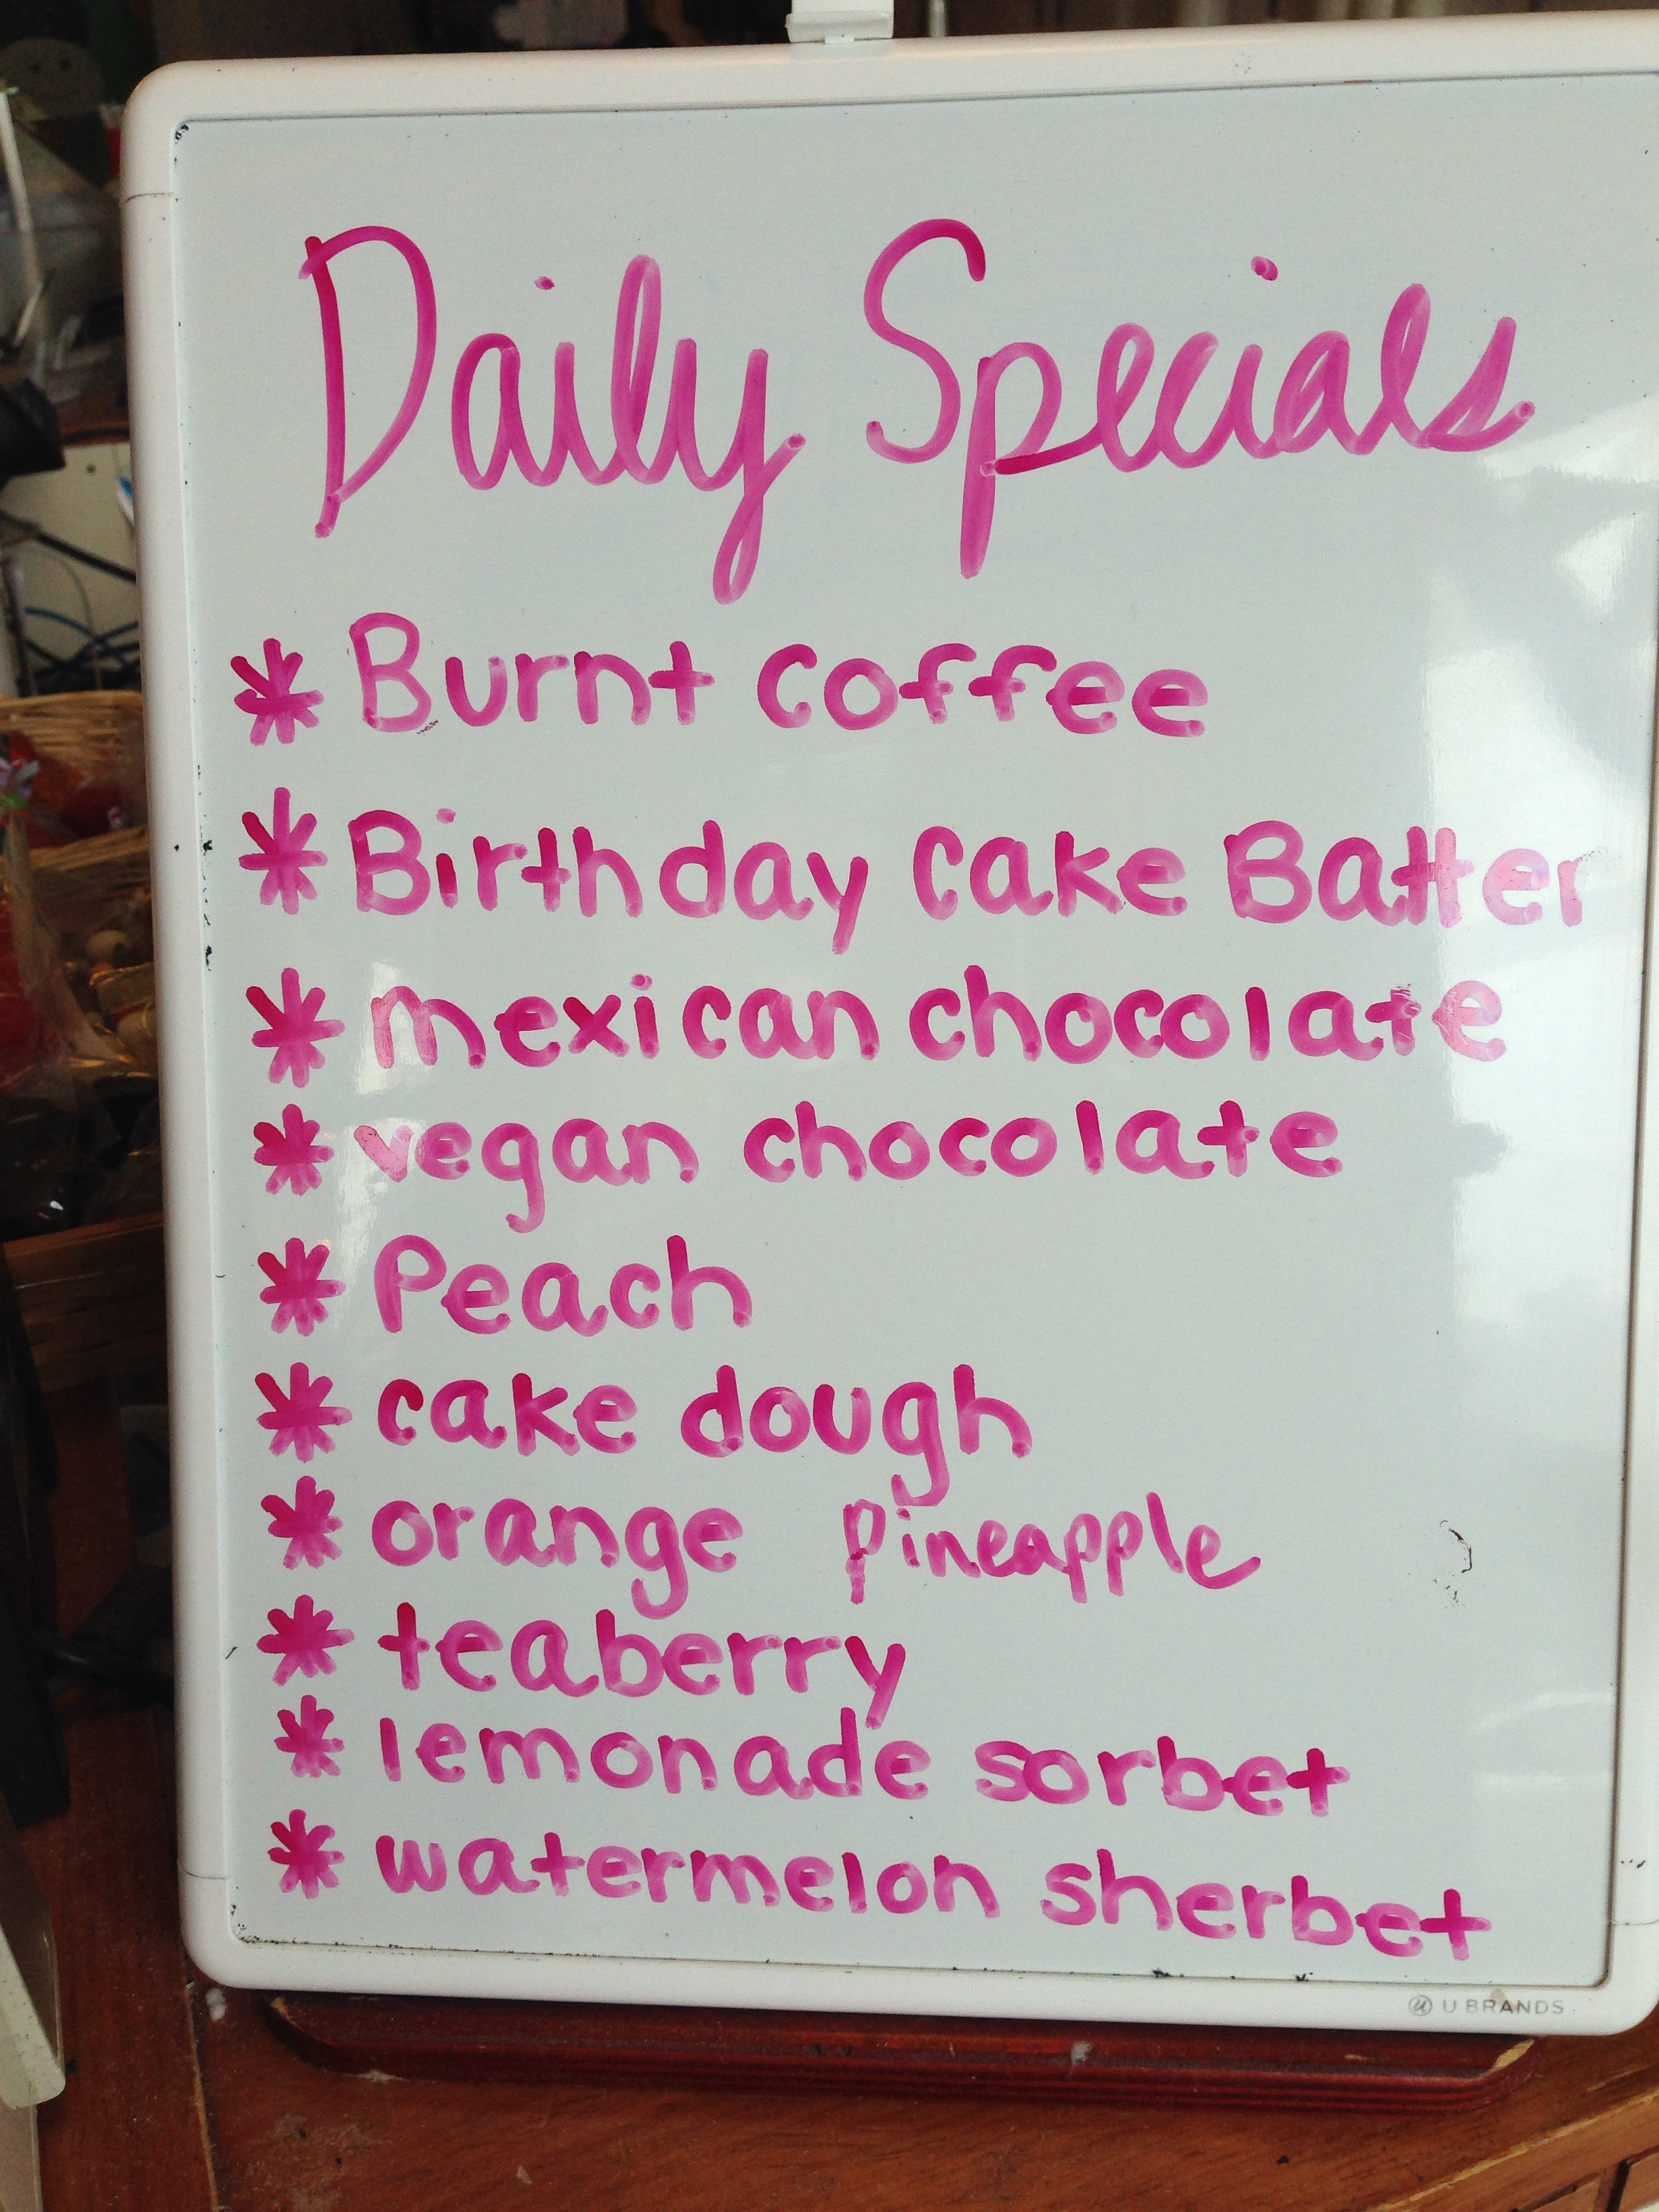 Daily Specials
* Burnt coffee
* Birthday cake Batter
* mexican chocolate
* vegan chocolate
* Peach
* cake dough
* orange pineapple
* teaberry
* lemonade sorbet
* watermelon sherbet
U BRANDS